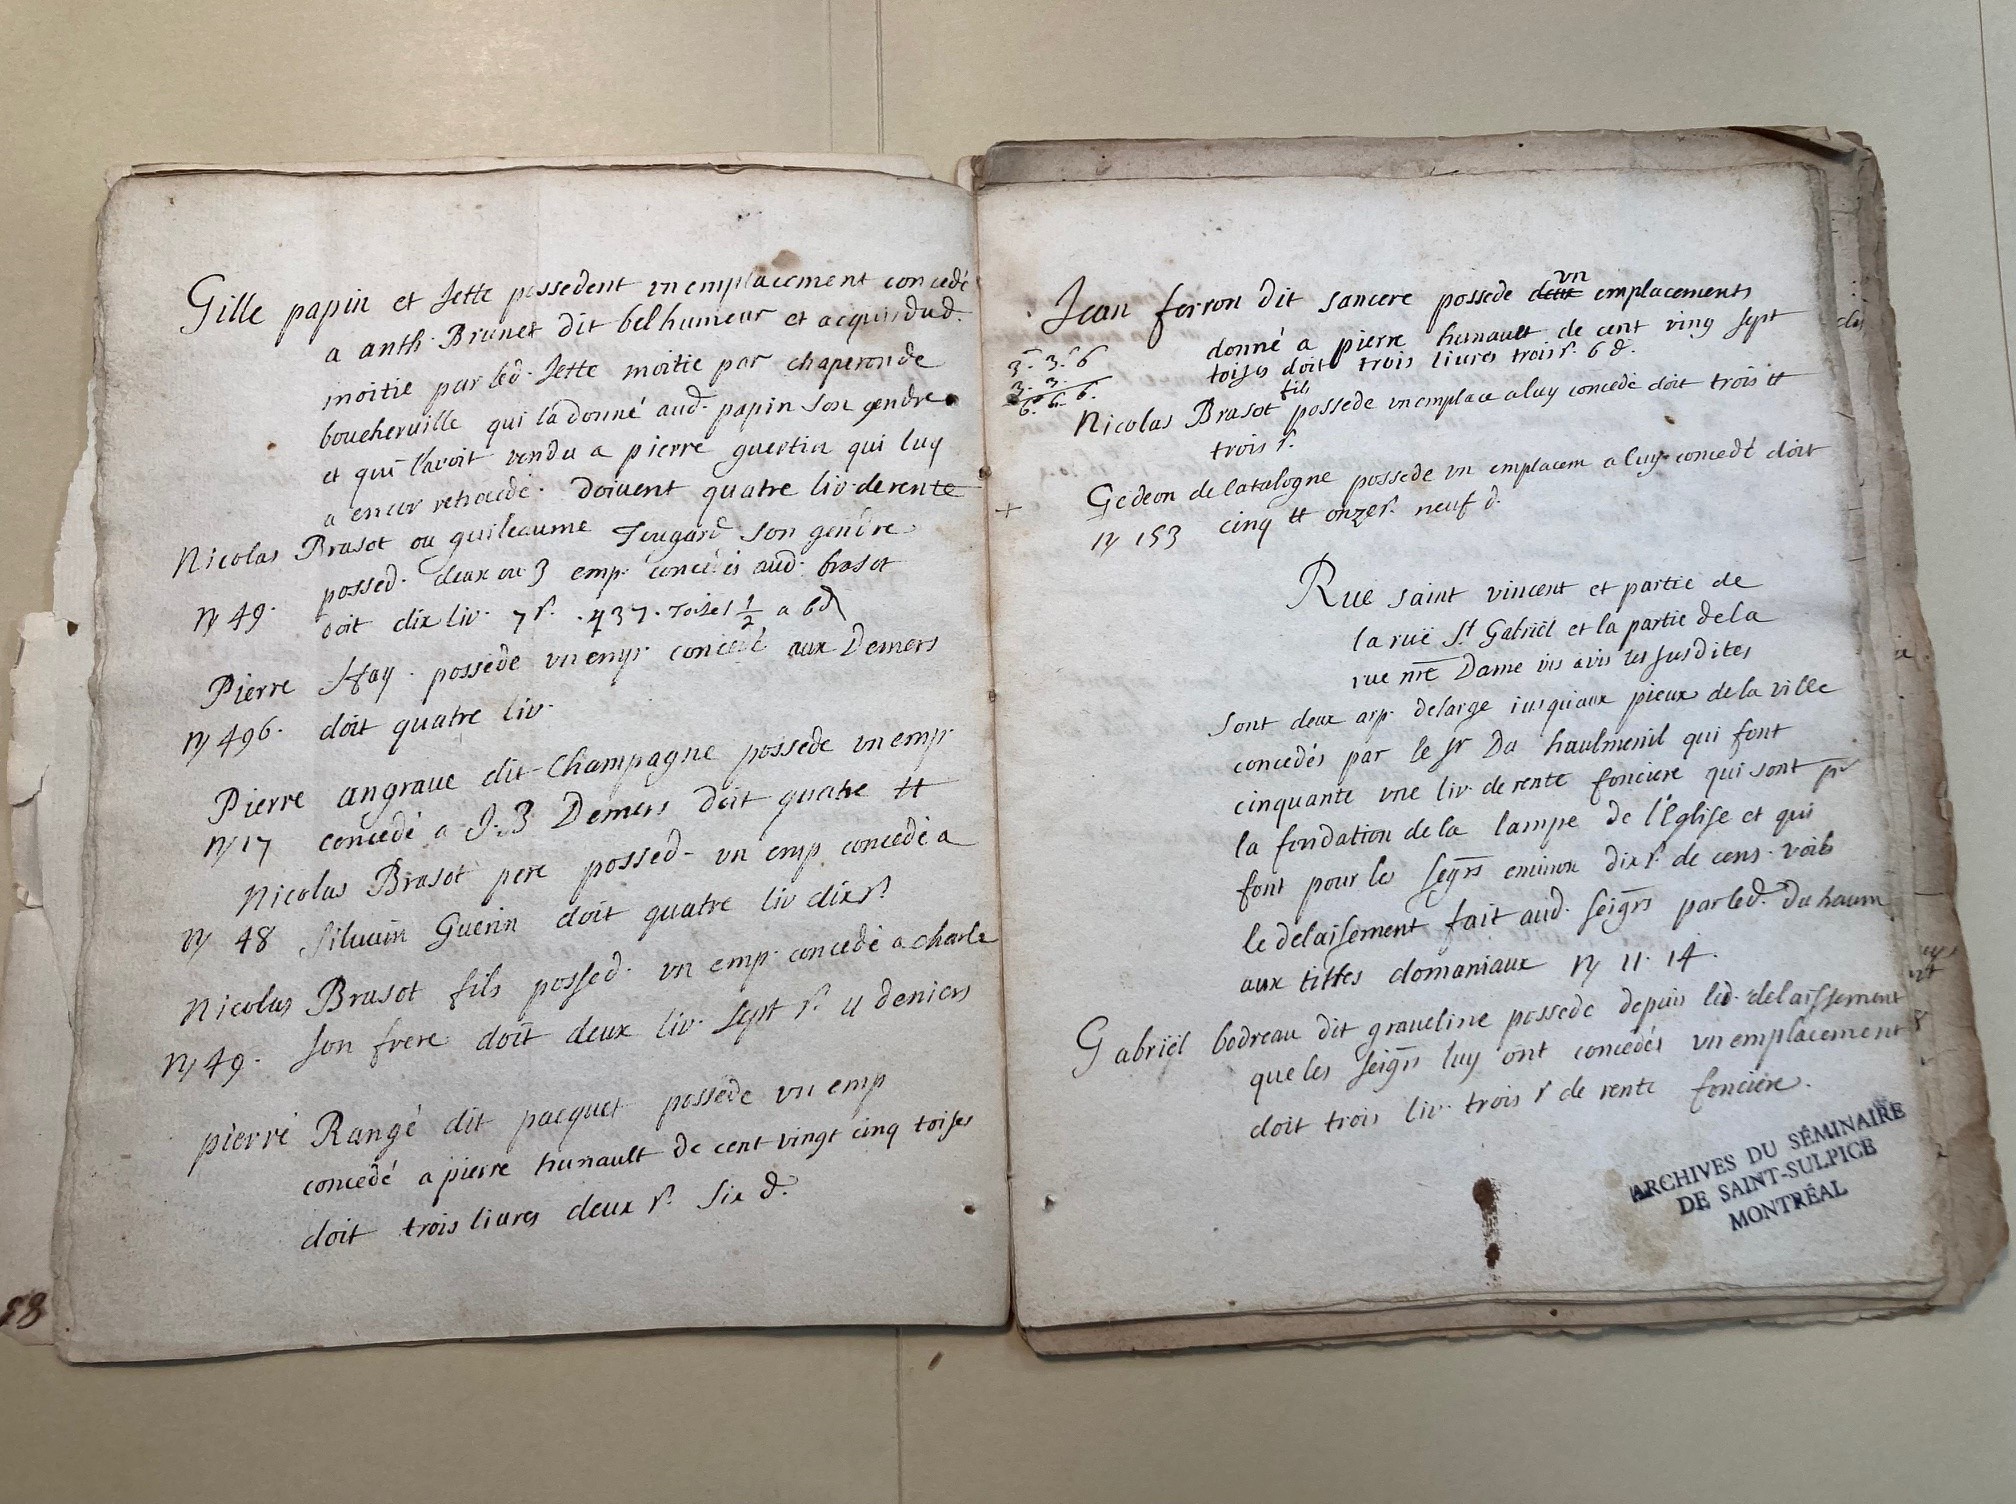 Gille papin et Jette possedent un emplacement concedé
a anth. Brunet dit bel humeur et acquis dud.
moitie par led. Jette moitie par chaperon de
boucherville qui la donné aud. papin son gendre
et qui l'avoit vendu a pierre guertin qui luy
a encor retrocede. doivent quatre liv. de rente
Nicolas Brasot ou guilleaume Tougard son gendre
possed. deux ou 3 emp. concedés aud. brasot
N 49. doit dix liv. 7 s. . 437. Toises 1/2 a 6 d
Pierre Hay. possede un emp. concedé aux Demers
N 496. doit quatre liv.
Pierre angrave dit Champagne possede un emp.
N 17 concedé a J. B Demers doit quatre tt
Nicolas Brasot pere possed. un emp concedé a
N 48 silvain Guerin doit quatre liv dix s.
Nicolas Brasot fils possed. un emp. concedé a charle
N 49. son frere doit deux liv. sept s. 4 deniers
pierre Rangé dit pacquet possede un emp
concedé a pierre hunault de cent vingt cinq toises
doit trois livres deux s. six d.
58
un
Jean ferron dit sancere possede deux emplacements
donné a pierre hunault de cent ving sept
3. 3. 6
toises doit trois livres trois s. 6 d.
3. 3.
6. 6. 6.
fils
Nicolas Brasot possede un emplace a luy concedé doit trois tt
trois s.
+ Gedeon de Catalogne possede un emplacem a luy concedé doit
N 153 cinq tt onze s. neuf d.
Rue saint vincent et partie de
la ruë St Gabriël et la partie de la
rue nre Dame vis avis les susdites
sont deux arp. de large iusqu'aux pieux de la ville
concedés par le sr Du haulmenil qui font
cinquante une liv. de rente fonciere qui sont pr
la fondation de la lampe de l'Eglise et qui
font pour les segrs environ dix s. de cens. voiés
le delaisement fait aud. seigrs par led. Du haum
aux tittes domaniaux N 11. 14.
Gabriël bodreau dit graveline possede depuis led. delaissement
que les seigrs luy ont concedés un emplacement
doit trois liv. trois s de rente fonciere.
ARCHIVES DU SÉMINAIRE
DE SAINT-SULPICE
MONTRÉAL